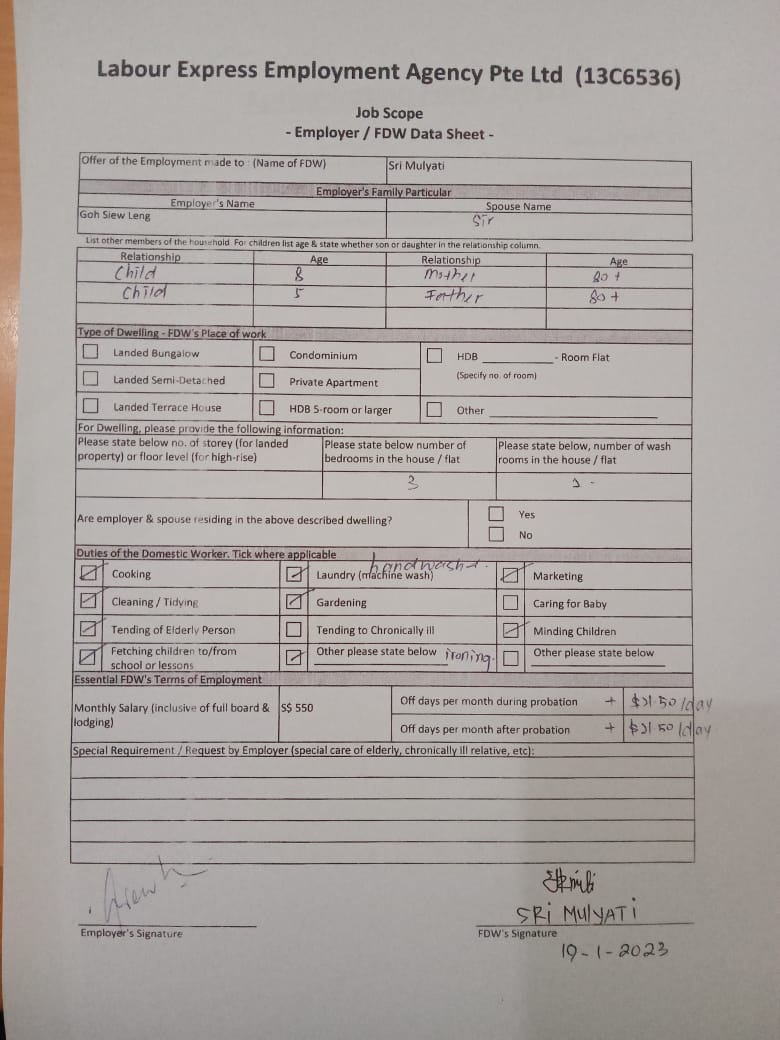 Labour Express Employment Agency Pte Ltd (13C6536)
Job Scope
- Employer / FDW Data Sheet -
Offer of the Employment made to : (Name of FDW) Sri Mulyati
Employer's Family Particular
Employer's Name Spouse Name
Goh Siew Leng Sir
List other members of the household. For children list age & state whether son or daughter in the relationship column.
Relationship Age Relationship Age
Child 8 Mother 80+
Child 5 Father 80+
Type of Dwelling - FDW's Place of work
Landed Bungalow Condominium HDB - Room Flat
(Specify no. of room)
Landed Semi-Detached Private Apartment
Landed Terrace House HDB 5-room or larger Other
For Dwelling, please provide the following information:
Please state below no. of storey (for landed property) or floor level (for high-rise)
Please state below number of bedrooms in the house / flat
Please state below, number of wash rooms in the house / flat
3
Are employer & spouse residing in the above described dwelling? Yes
No
Duties of the Domestic Worker. Tick where applicable
handwash
Cooking Laundry (machine wash) Marketing
Cleaning / Tidying Gardening Caring for Baby
Tending of Elderly Person Tending to Chronically ill Minding Children
Fetching children to/from school or lessons Other please state below ironing. Other please state below
Essential FDW's Terms of Employment
Monthly Salary (inclusive of full board & lodging) S$ 550
Off days per month during probation + 50/day
Off days per month after probation + 50/day
Special Requirement / Request by Employer (special care of elderly, chronically ill relative, etc):
SRi MUlYATi
Employer's Signature FDW's Signature
19-1-2023